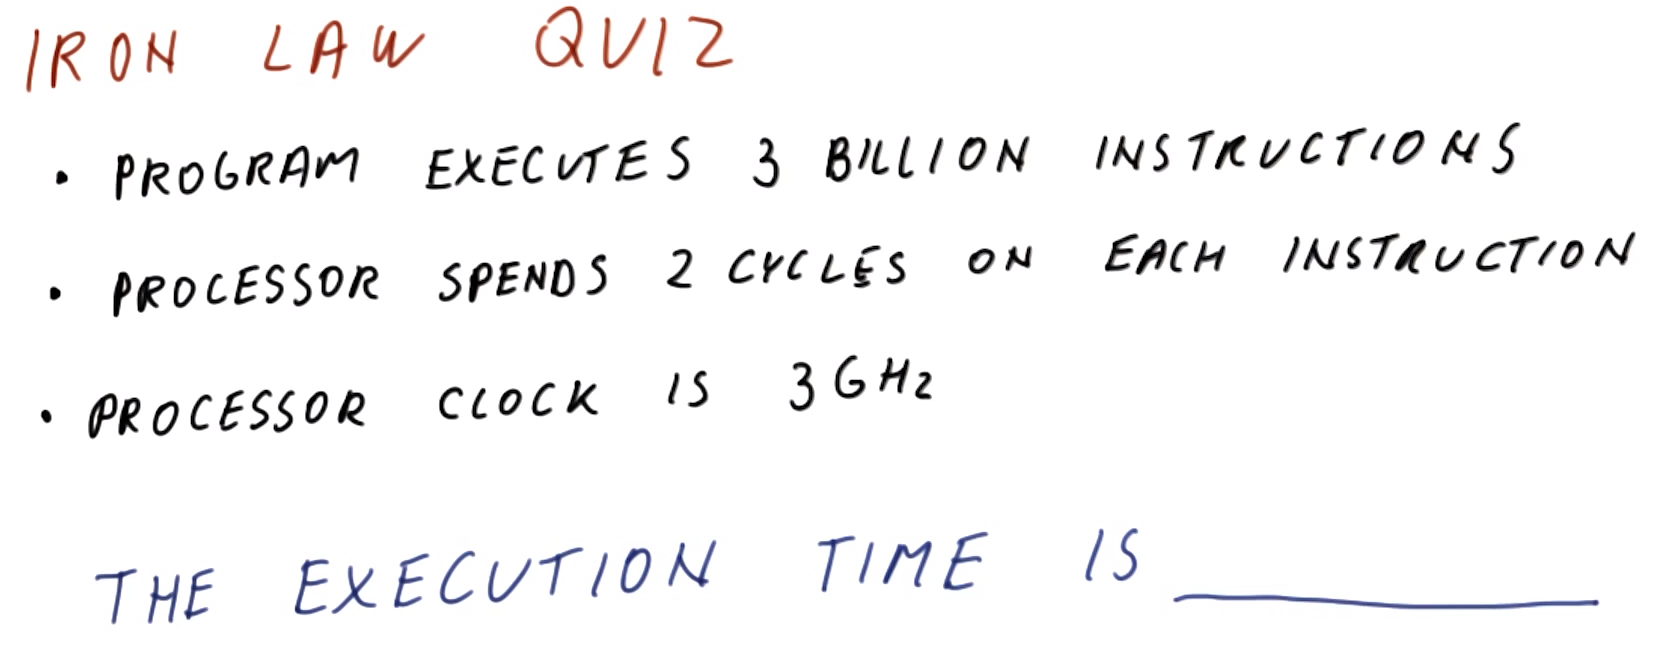 IRON LAW QUIZ
• PROGRAM EXECUTES 3 BILLION INSTRUCTIONS
• PROCESSOR SPENDS 2 CYCLES ON EACH INSTRUCTION
• PROCESSOR CLOCK IS 3GHz
THE EXECUTION TIME IS ________